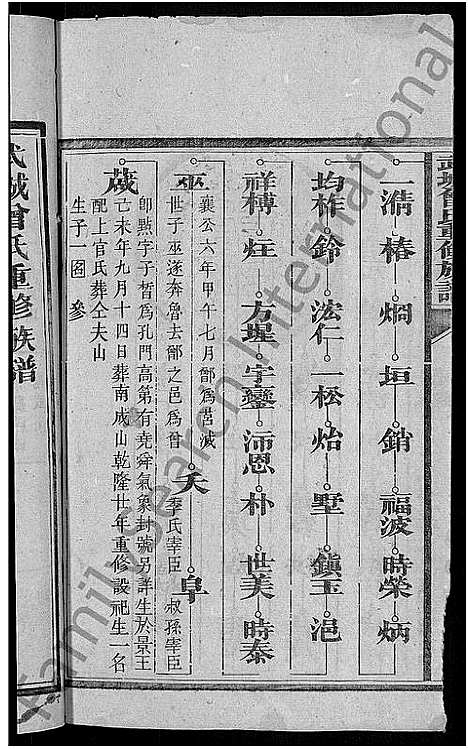 武城曾氏重修族譜
一濆 椿 烱 垣 銷 福波 時榮 炳
均祚 鈴 浤仁 一松 炲 墅 鎮玉 浥
祥槫 炷 方墭 宇鑾 沛恩 朴 世美 時泰
巫 襄公六年甲午七月鄫為莒滅 世子巫遂奔魯去鄫之邑為曾 夭 季氏宰臣 阜 叔孫宰臣
蒧 即㸃字子晳為孔門高第有堯舜氣象封號另詳生於景王
己未年九月十四日葬南成山乾隆廿年重修設祀生一名
配上官氏葬仝夫山
生子一 图 參
武城曾氏重修族譜
FamilySearch International